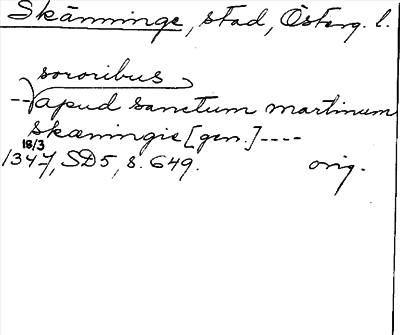 Skänninge, stad, Österg. l.
sororibus
--apud sanctum martinum
skæningie [gen.]----
18/3
1347, SD5, s. 649. orig.